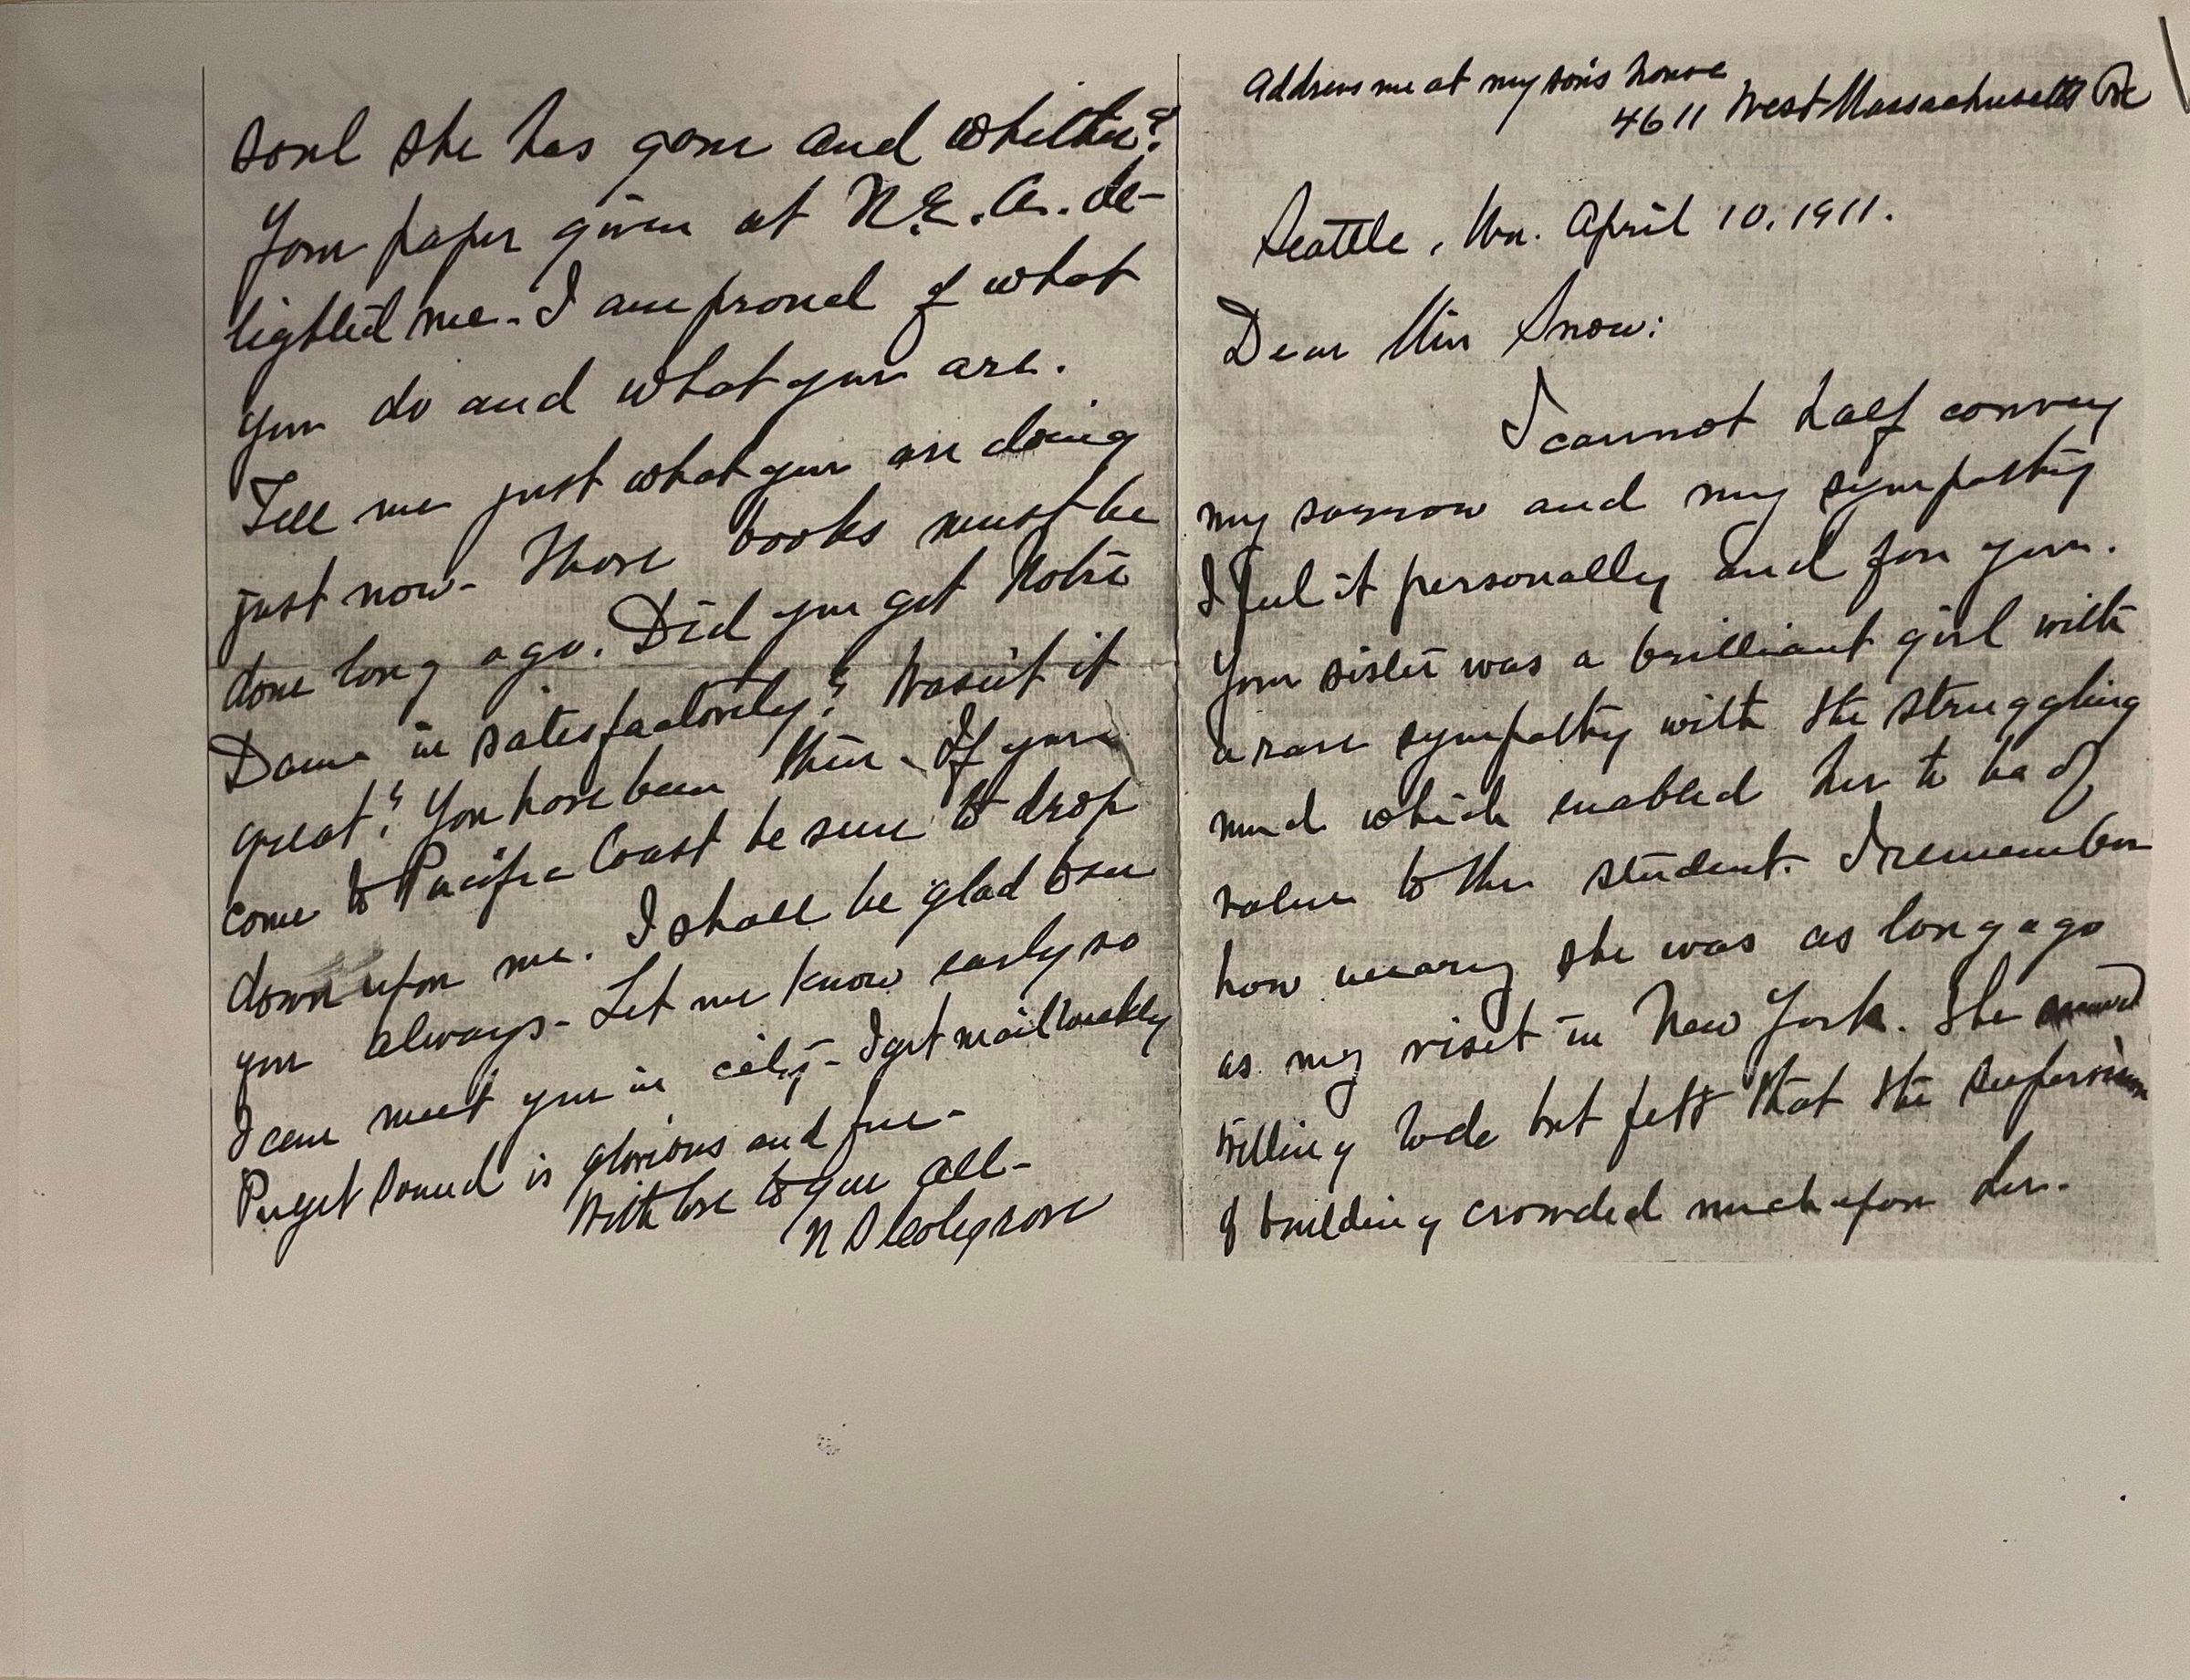 Address me at my son's house
4611 West Massachusetts Ave
Seattle, Wn. April 10, 1911.
Dear Miss Snow:
I cannot half convey
my sorrow and my sympathy
I feel it personally and for you.
Your sister was a brilliant girl with
a rare sympathy with the struggling
mind which enabled her to be of
value to the student. I remember
how weary she was as long ago
as my visit in New York. She
willing to do but felt that the supervision
of building crowded much upon her.
soul she has gone and whither?
Your paper given at N.E.A. de-
lighted me - I am proud of what
you do and what you are.
Tell me just what you are doing
just now - Those books must be
done long ago. Did you get Notre
Dame in satisfactorily? Wasn't it
great? You have been there - If you
come to Pacific Coast be sure to drop
down upon me. I shall be glad to see
you always - Let me know early so
I can meet you in city - I get mail weekly
Puget Sound is glorious and fine -
With love to you all -
N D Colegrove